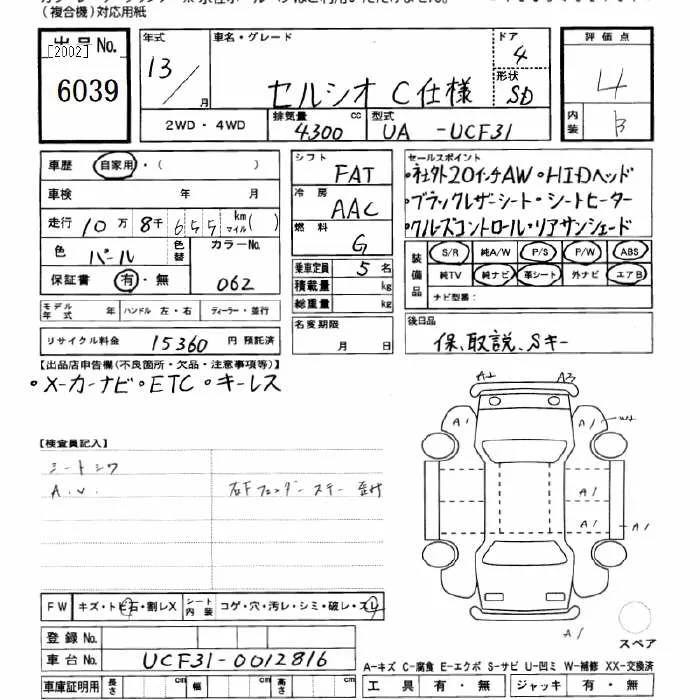 (複合機)対応用紙
出品No.
[2002]
6039
年式
13/
月
車名・グレード
セルシオ C仕様
ドア
4
形状
SD
評価点
4
内装
B
2WD・4WD
排気量
4300
cc
型式
UA -UCF31
車歴
自家用・( )
車検 年 月
走行 10万 8千 655 km マイル( )
色 パール
色替
カラーNo.
062
保証書 有・無
モデル年式 年
ハンドル 左・右
ディーラー・並行
リサイクル料金 15360 円 預託済
シフト
FAT
冷房
AAC
燃料
G
乗車定員 5 名
積載量 kg
総重量 kg
名変期限
月 日
セールスポイント
・社外20インチAW・HIDヘッド
・ブラックレザーシート・シートヒーター
・クルーズコントロール・リアサンシェード
装備品
S/R 純A/W P/S P/W ABS
純TV 純ナビ 革シート 外ナビ エアB
ナビ型番:
後日品
保、取説、Sキー
【出品店申告欄(不良箇所・欠品・注意事項等)】
・メーカーナビ・ETC・キーレス
【検査員記入】
シートシワ
A.U.
右Fフェンダーステー歪み
A2 A3
A1 A1
A1
A1
A1 A1
A1
スペア
FW キズ・トビ石・割レX
シート内装 コゲ・穴・汚レ・シミ・破レ・スレ
登録No.
車台No. UCF31-0012816
車庫証明用 長さ cm 幅 cm 高さ cm
A-キズ C-腐食 E-エクボ S-サビ U-凹ミ W-補修 XX-交換済
工具 有・無 ジャッキ 有・無